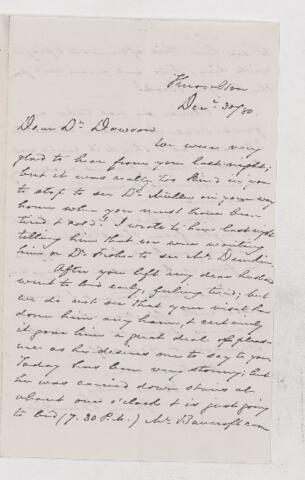 Princeton
Decr. 30/80.
Dear Dr. Dawson
We were very
glad to hear from you last night;
but it was really too kind in you
to stop to see Dr. Müller on your way
home when you must have been
tired & cold! I wrote to him last night
telling him that you were wanting
him or Dr. to see Mr.
After you left my dear husband
went to bed early, feeling tired; but
we do not see that your visit has
done him any harm, & certainly
it gave him a great deal of pleas-
ure as he desires me to say to you
Today has been very stormy; but
he was carried down stairs at
about one o'clock & is just going
to bed (7.30 P.M.) Mr. Bancroft came